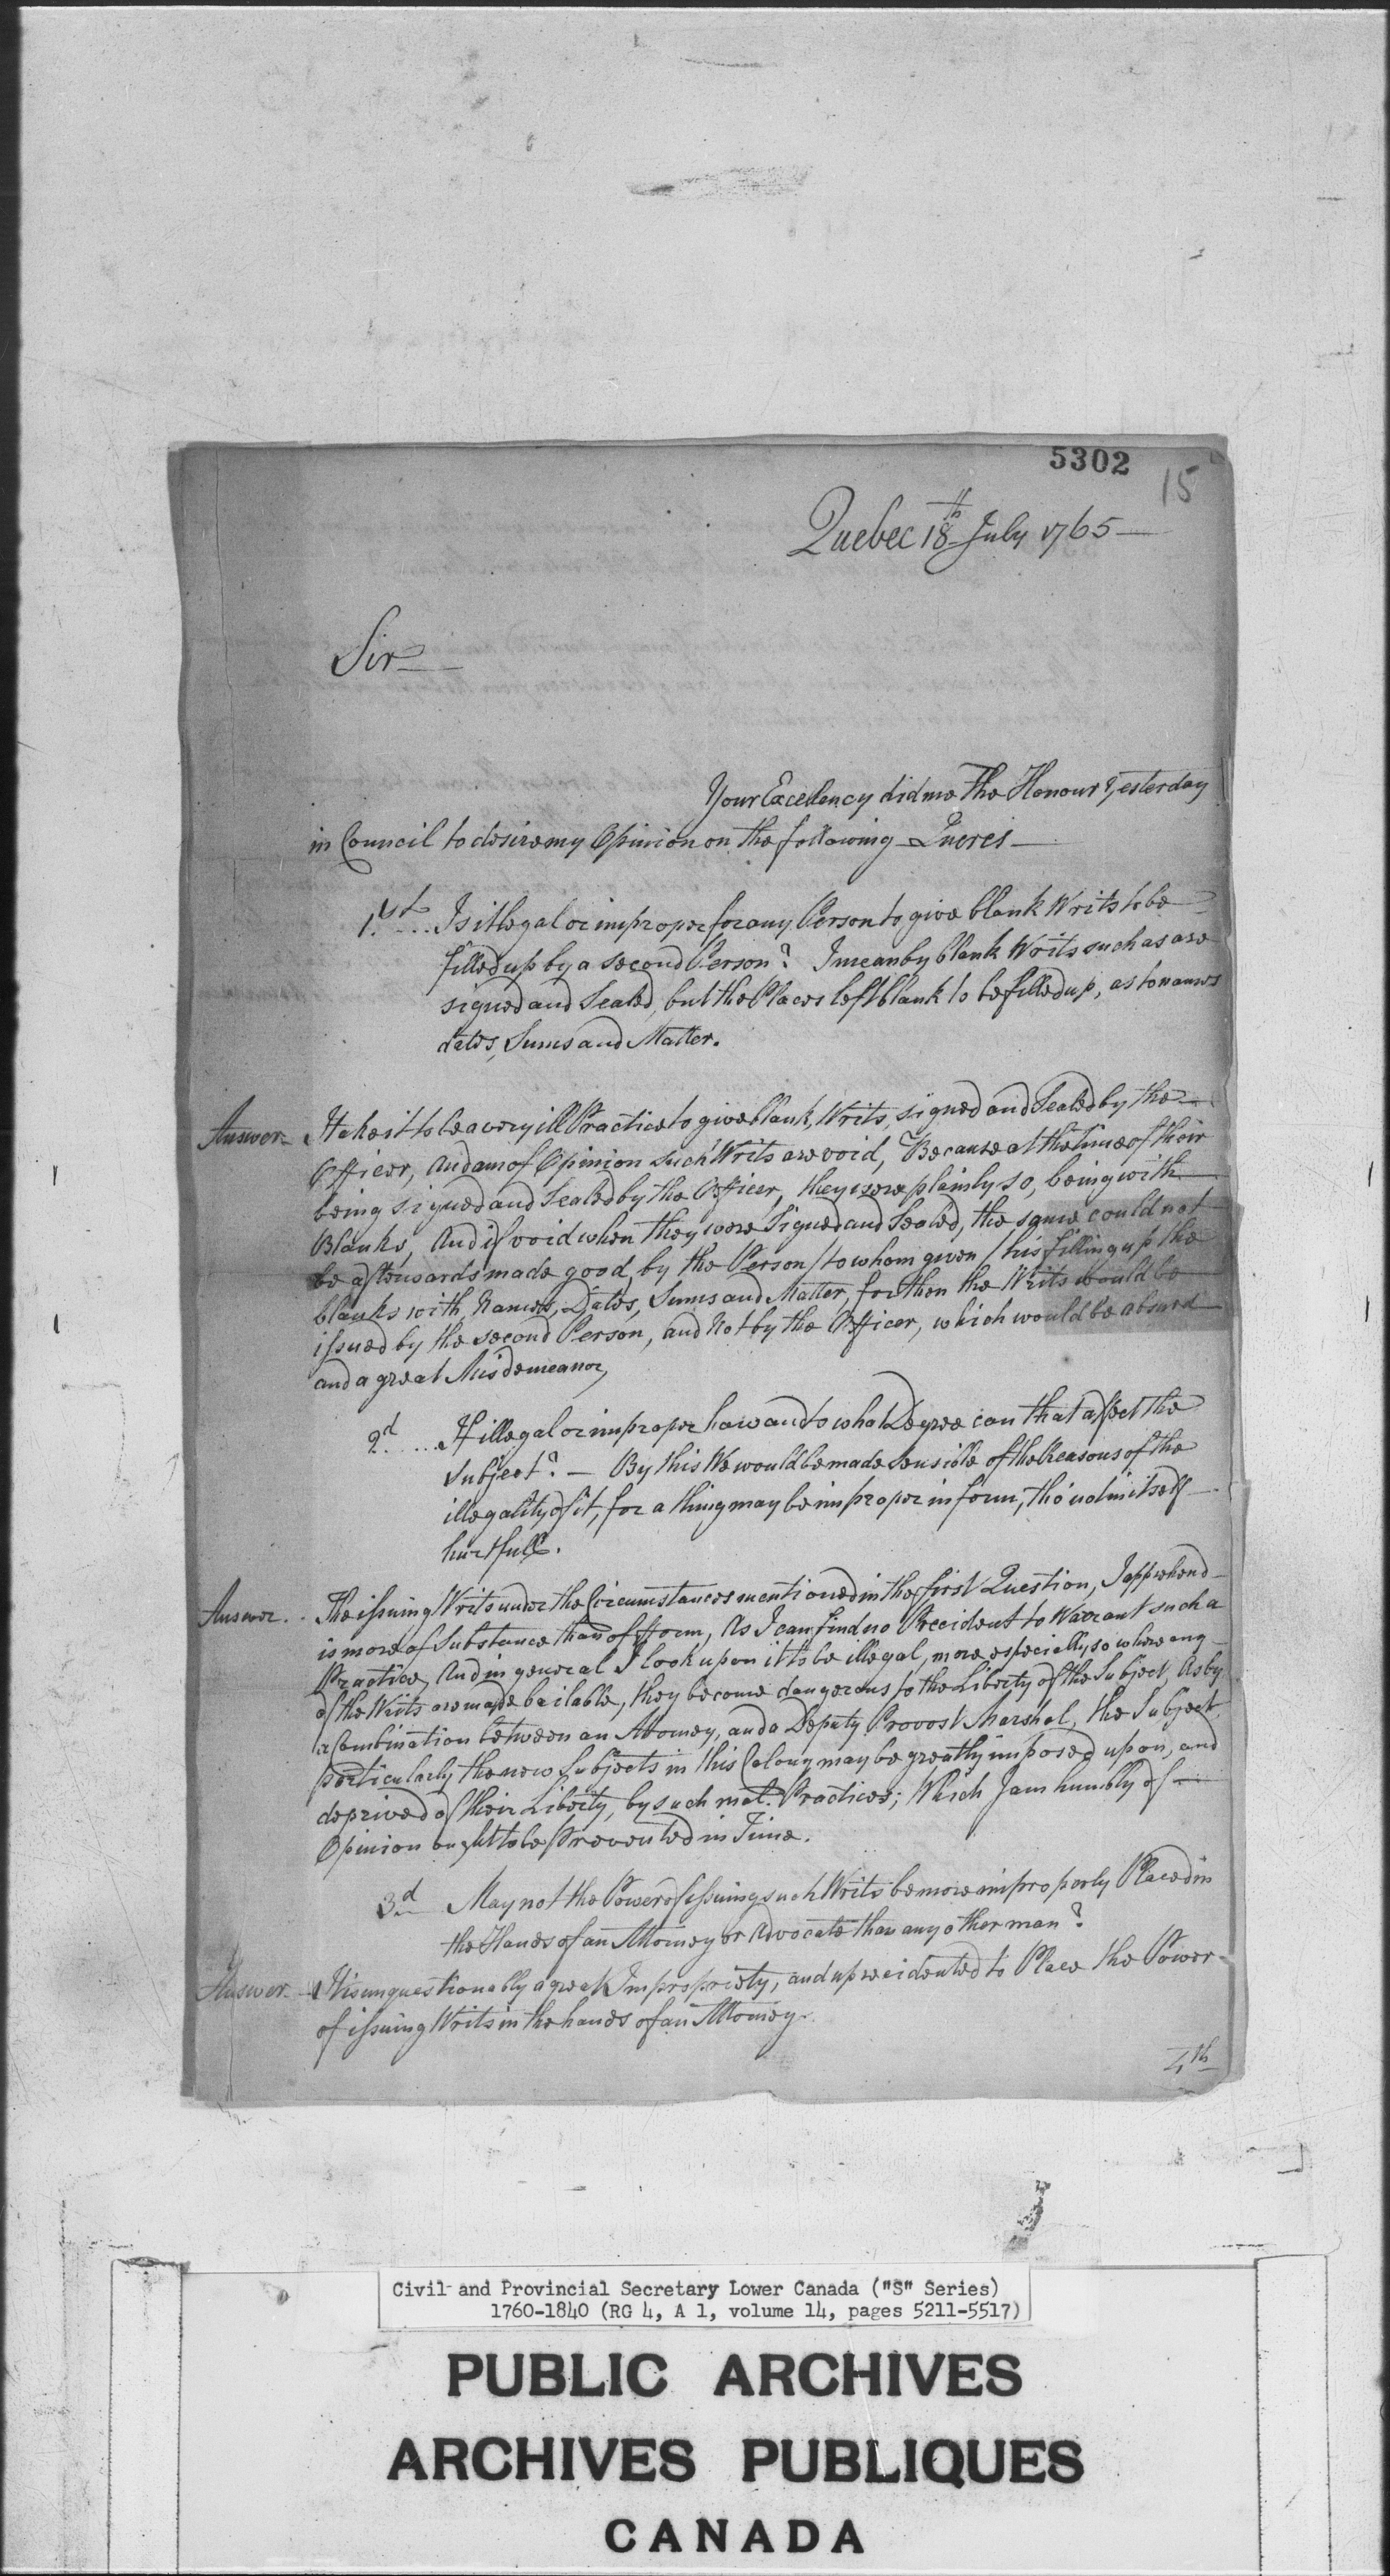 5302
15
Quebec 18th July 1765
Sir
Your Excellency did me The Honour Yesterday
in Council to desire my Opinion on the following Queries
1st Is it legal or improper for any Person to give blank Writs to be
filled up by a second Person? I mean by blank Writs such as are
signed and Sealed, but the Places left blank to be filled up, as to names
dates, Sums and Matter.
Answer I take it to be a very ill Practice to give blank Writs, signed and Sealed by the
Officer, And am of Opinion such Writs are void, Because at the time of their
being signed and Sealed by the Officer, they were plainly so, being with
Blanks, And if void when they were Signed and Sealed, the same could not
be afterwards made good, by the Person / to whom given / his filling up the
blanks with, Names, Dates, Sums and Matter, for then the Writs would be
issued by the second Person, and Not by the Officer, which would be absurd
and a great Misdemeanor,
2d If illegal or improper how and to what Degree can that affect the
Subject? — By this We would be made sensible of the Reasons of the
illegality of it, for a thing may be improper in form, tho' not in itself
hurtfull.
Answer The issuing Writs under the Circumstances mentioned in the first Question, I apprehend
is more of Substance than of Form, As I can find no Precident to Warrant such a
Practice, And in general I look upon it to be illegal, more especially so where any
of the Writs are made bailable, they become dangerous to the Liberty of the Subject, As by
a Combination between an Attorney, and a Deputy Provost Marshal, the Subject,
particularly the new Subjects in this Colony may be greatly imposed upon, and
deprived of their Liberty, by such mal. Practices; Which I am humbly of
Opinion ought to be Prevented in Time.
3d May not the Power of issuing such Writs be more improperly Placed in
the Hands of an Attorney or Advocate than any other man?
Answer It is unquestionably a great Impropriety, and unprecidented to Place the Power
of issuing Writs in the hands of an Attorney.
4th
Civil and Provincial Secretary Lower Canada ("S" Series)
1760-1840 (RG 4, A 1, volume 14, pages 5211-5517)
PUBLIC ARCHIVES
ARCHIVES PUBLIQUES
CANADA